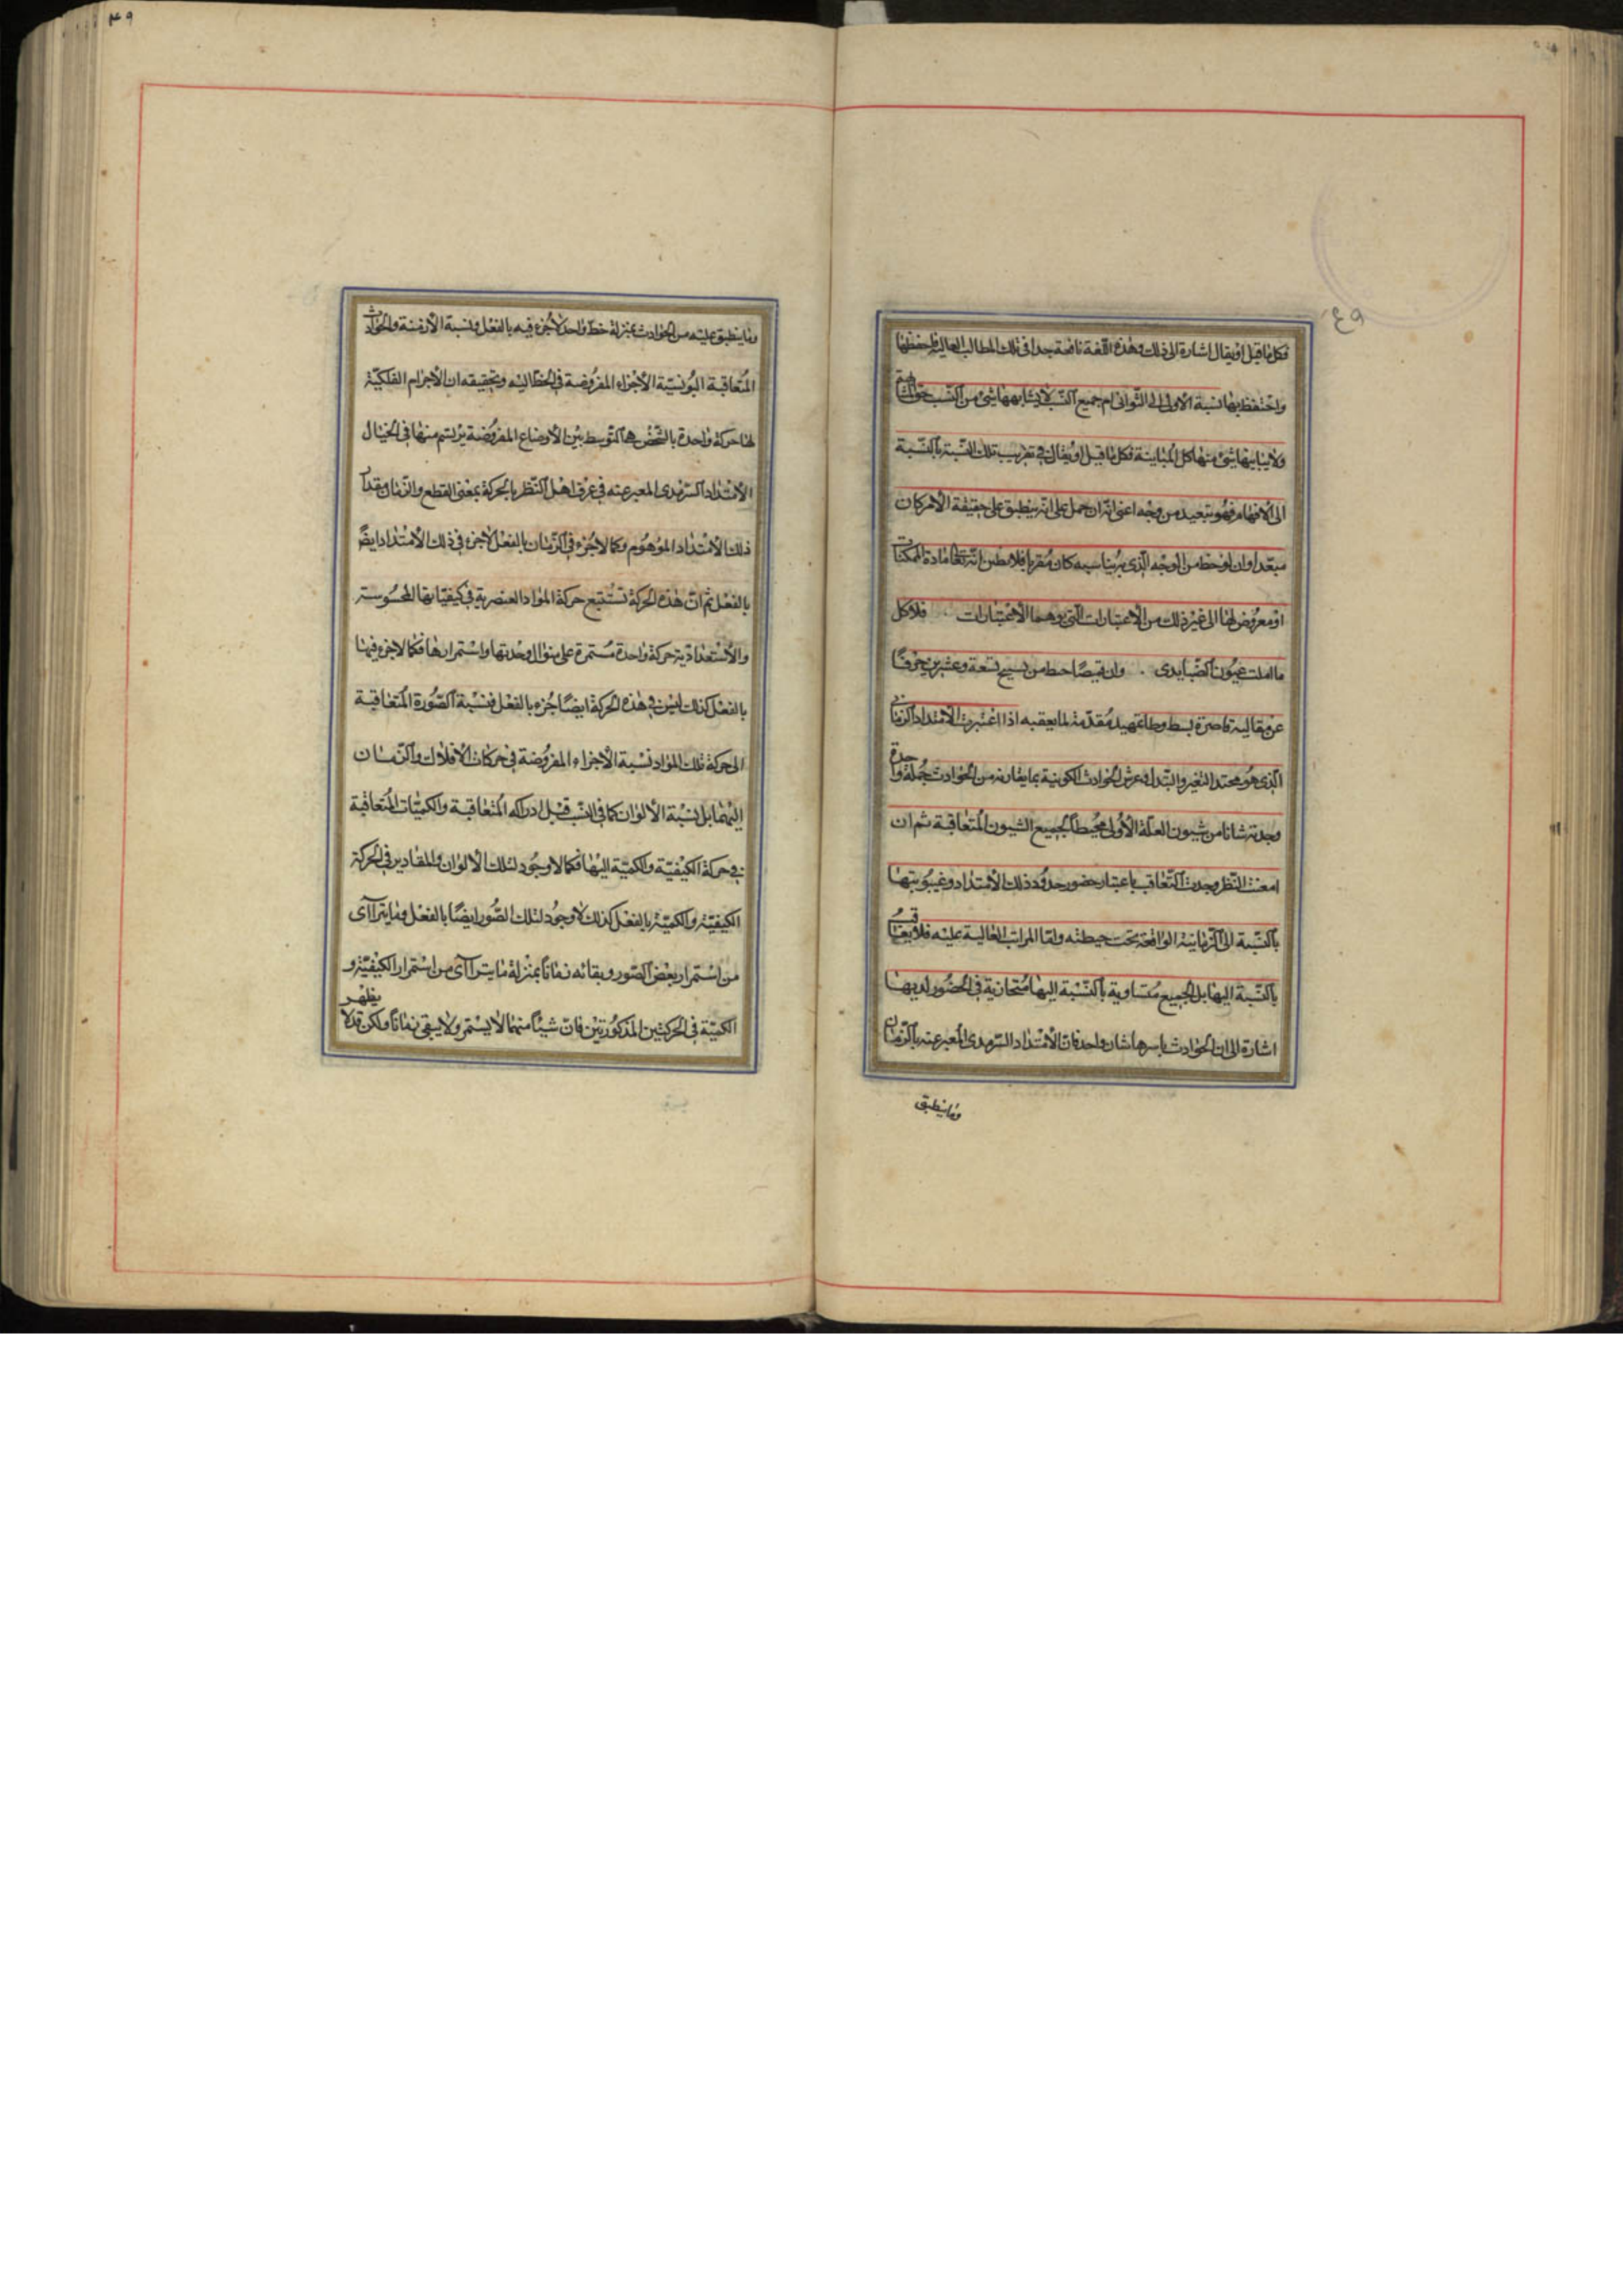 فكل ما قيل او يقال اشارة الى ذلك وهذه اللمعة نافعة جدا فى تلك المطالب العالية فاحفظها
واحتفظ بها نسبة الاولى الى الثوانى ام جميع النسب لا يشابهها شئ من النسب حق المشابهة
ولا يباينها شئ منها كل المباينة فكل ما قيل او يقال فى تقريب تلك النسبة بالنسبة
الى الافهام فهو تبعيد من وجه اعنى انه ان حمل على انه ينطبق على حقيقة الامر كان
مبعدا وان لوحظ من الوجه الذى به يناسبه كان مقربا فلا تظن انه تعالى مادة الممكنات
او معروض لها الى غير ذلك من الاعتبارات التى يوهمها الاعتبارات فلا كل
ما املت عيون الضبا يدى وان قميصا خيط من نسج تسعة وعشرين حرفا
عن معاليه قاصرة بسط وطاء تمهيد مقدمة لما يعقبه اذا اعتبرت الامتداد الزمانى
الذى هو محتد التغير والتبدل وعرش الحوادث الكونية بما يقارنه من الحوادث جملة واحدة
وجدته شانا من شيون العلة الاولى محيطا بجميع الشيون المتعاقبة ثم ان
امعنت النظر وجدت التعاقب باعتبار حضور حدود ذلك الامتداد وغيبوبتها
بالنسبة الى الزمانيات الواقعة تحت حيطته واما المراتب العالية عليه فلا تعاقب
بالنسبة اليها بل الجميع متساوية بالنسبة اليها متحاذية فى الحضور لديها
اشارة الى ان الحوادث باسرها شان واحد فان الامتداد السرمدى المعبر عنه بالزمان
وما ينطبق
٤٩
وما ينطبق عليه من الحوادث بمنزلة خط واحد لا جزء فيه بالفعل ونسبة الازمنة والحوادث
المتعاقبة اليه نسبة الاجزاء المفروضة فى الخط اليه وتحقيقه ان الاجرام الفلكية
لها حركة واحدة بالشخص هى التوسط بين الاوضاع المفروضة يرتسم منها فى الخيال
الامتداد السرمدى المعبر عنه فى عرف اهل النظر بالحركة بمعنى القطع والزمان مقدار
ذلك الامتداد الموهوم وكما لا جزء فى الزمان بالفعل لا جزء فى ذلك الامتداد ايضا
بالفعل ثم ان هذه الحركة تستتبع حركة المواد العنصرية فى كيفياتها المحسوسة
والاستعدادية حركة واحدة مستمرة على منوال وحدتها واستمرارها فكما لا جزء فيها
بالفعل كذلك ليس فى هذه الحركة ايضا جزء بالفعل فنسبة الصورة المتعاقبة
الى حركة تلك المواد نسبة الاجزاء المفروضة فى حركات الافلاك والزمان
اليهما بل نسبة الالوان كما فى النسب قبل ادراكه المتعاقبة والكميات المتعاقبة
فى حركة الكيفية والكمية اليها فكما لا وجود لتلك الالوان والمقادير فى الحركة
الكيفية والكمية بالفعل كذلك لا وجود لتلك الصور ايضا بالفعل وما يترآاى
من استمرار بعض الصور وبقائه زمانا بمنزلة ما يترآاى من استمرار الكيفية و
الكمية فى الحركتين المذكورتين فان شيئا منهما لا يستمر ولا يبقى زمانا ولكن قد لا يظهر